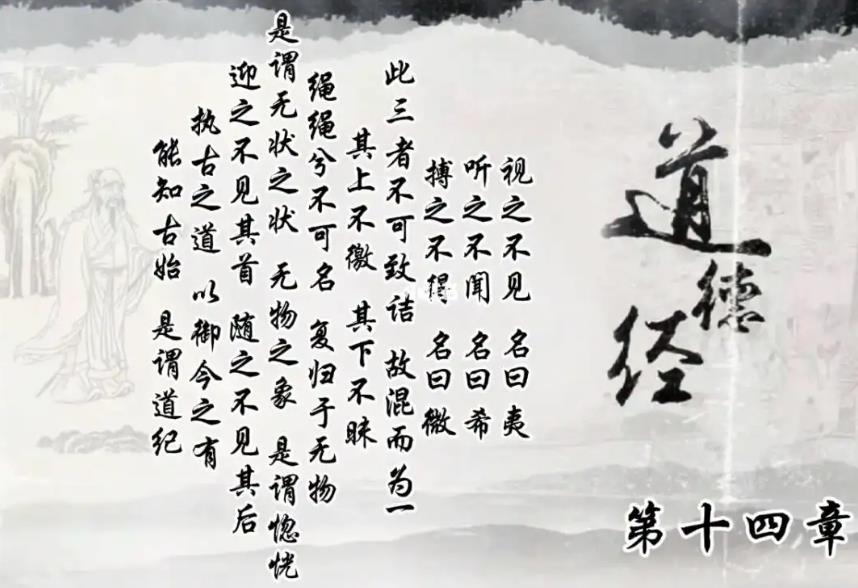 道德经
第十四章
视之不见 名曰夷
听之不闻 名曰希
搏之不得 名曰微
此三者不可致诘 故混而为一
其上不徼 其下不昧
绳绳兮不可名 复归于无物
是谓无状之状 无物之象 是谓惚恍
迎之不见其首 随之不见其后
执古之道 以御今之有
能知古始 是谓道纪